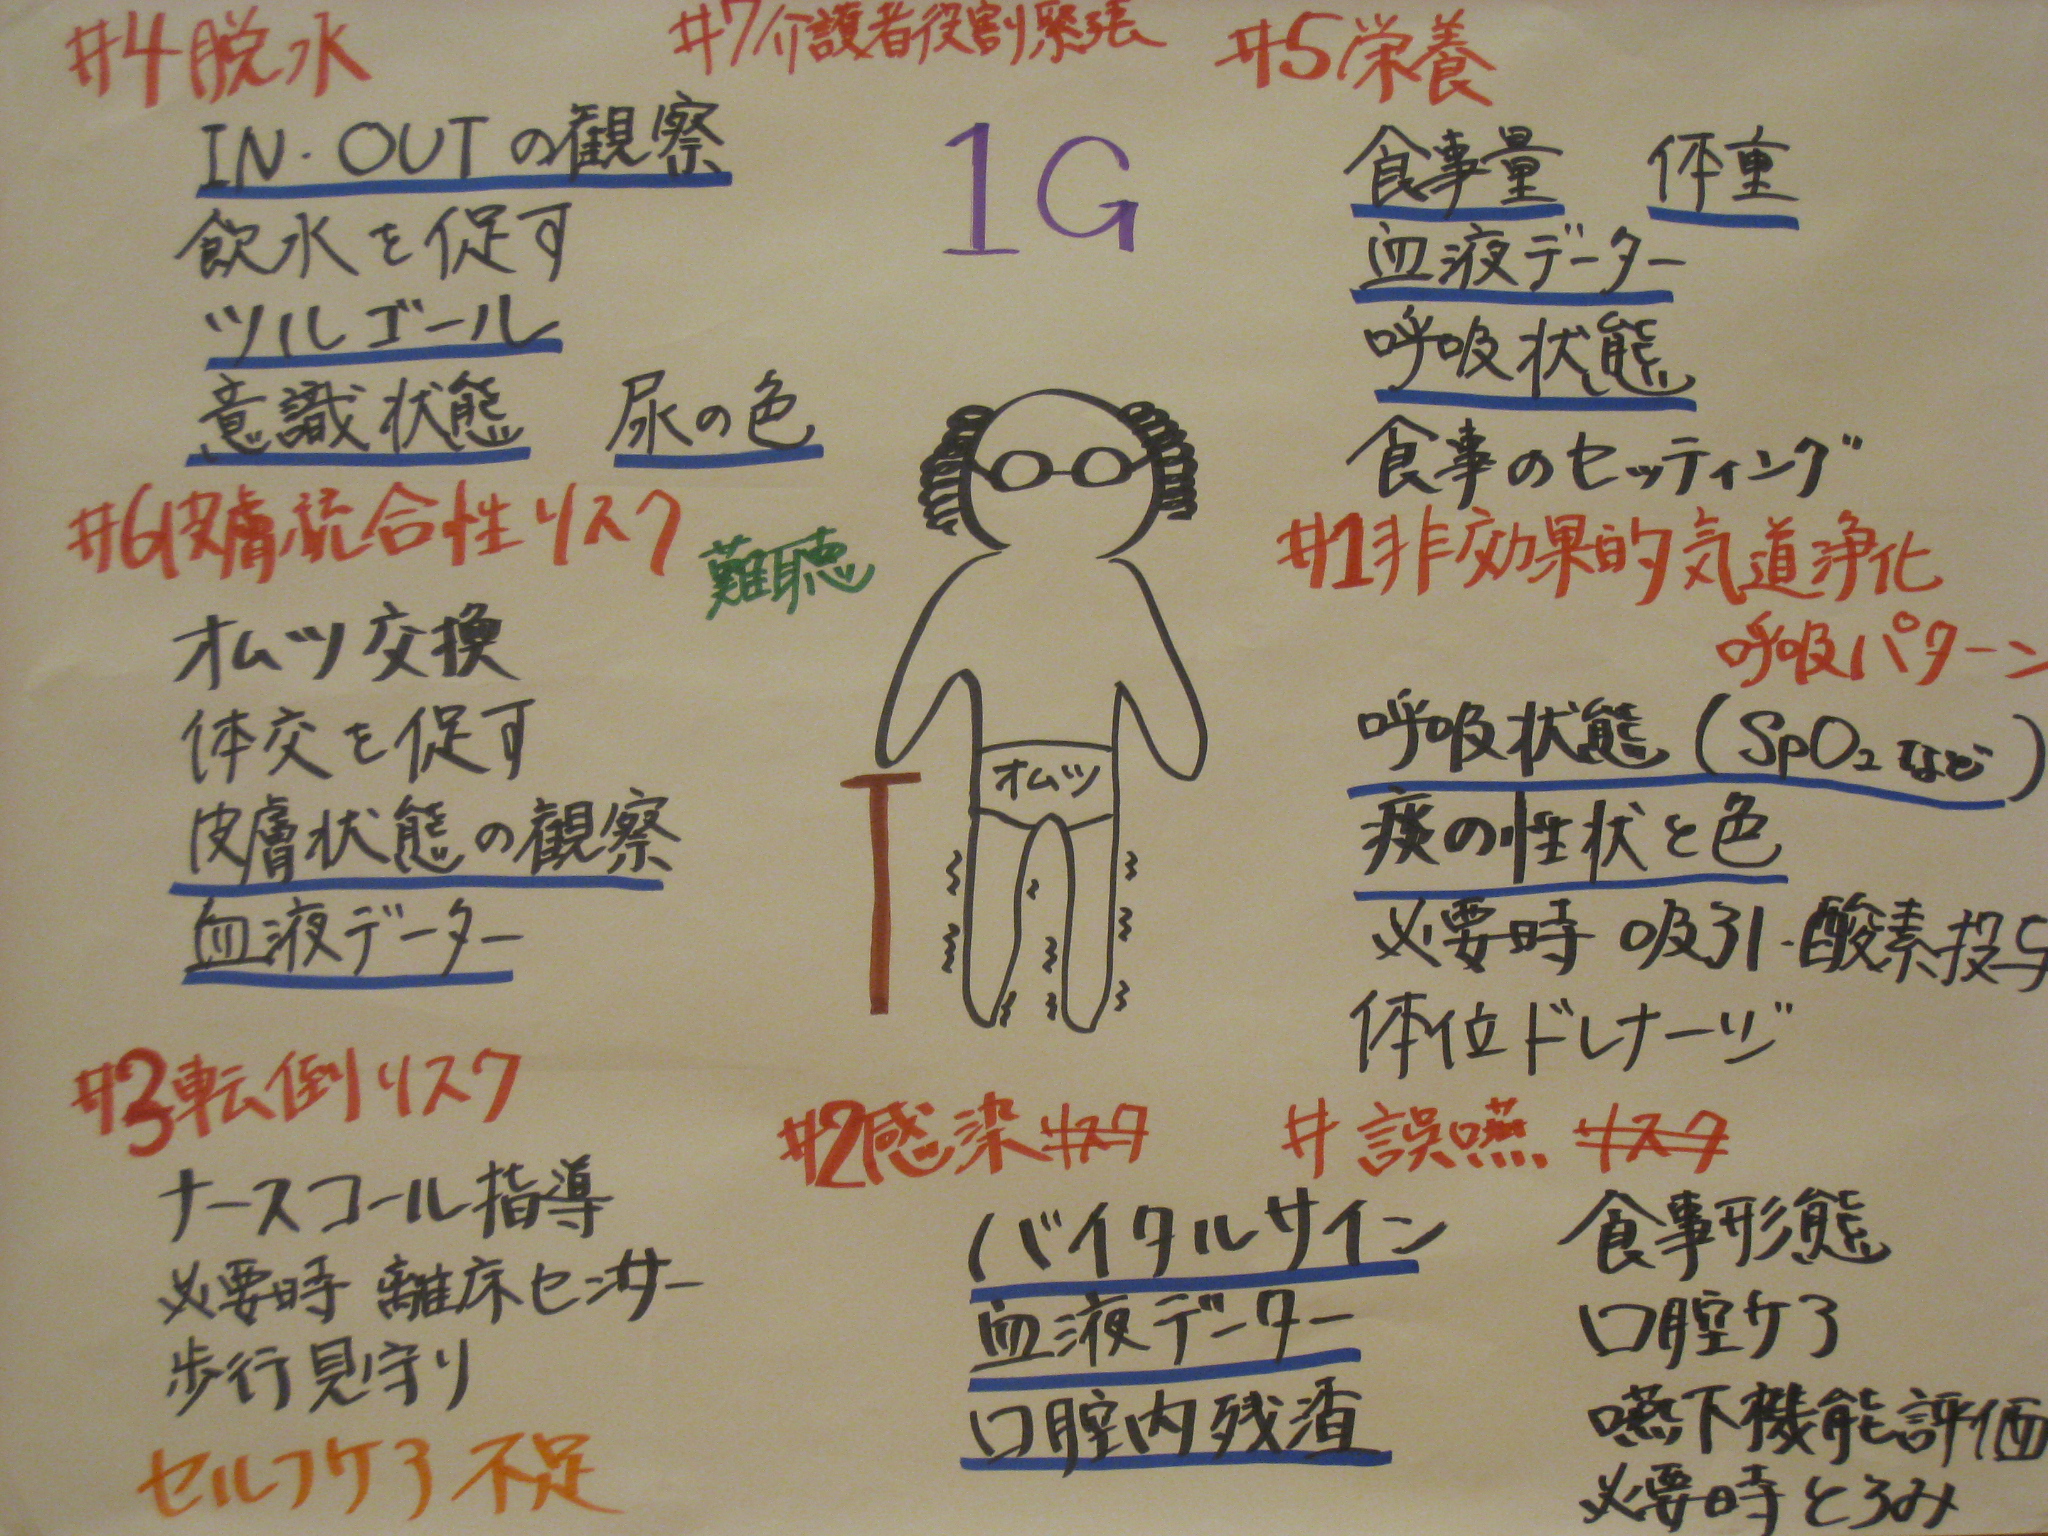 #4 脱水
IN・OUTの観察
飲水を促す
ツルゴール
意識状態 尿の色
#7介護者役割緊張
1G
#5栄養
食事量 体重
血液データー
呼吸状態
食事のセッティング
#6皮膚統合性リスク
オムツ交換
体交を促す
皮膚状態の観察
血液データー
難聴
オムツ
#1非効果的気道浄化
呼吸パターン
呼吸状態(SpO2など)
痰の性状と色
必要時 吸引・酸素投与
体位ドレナージ
#3転倒リスク
ナースコール指導
必要時 離床センサー
歩行見守り
セルフケア不足
#2感染リスク
バイタルサイン
血液データー
口腔内残渣
# 誤嚥 リスク
食事形態
口腔ケア
嚥下機能評価
必要時とろみ